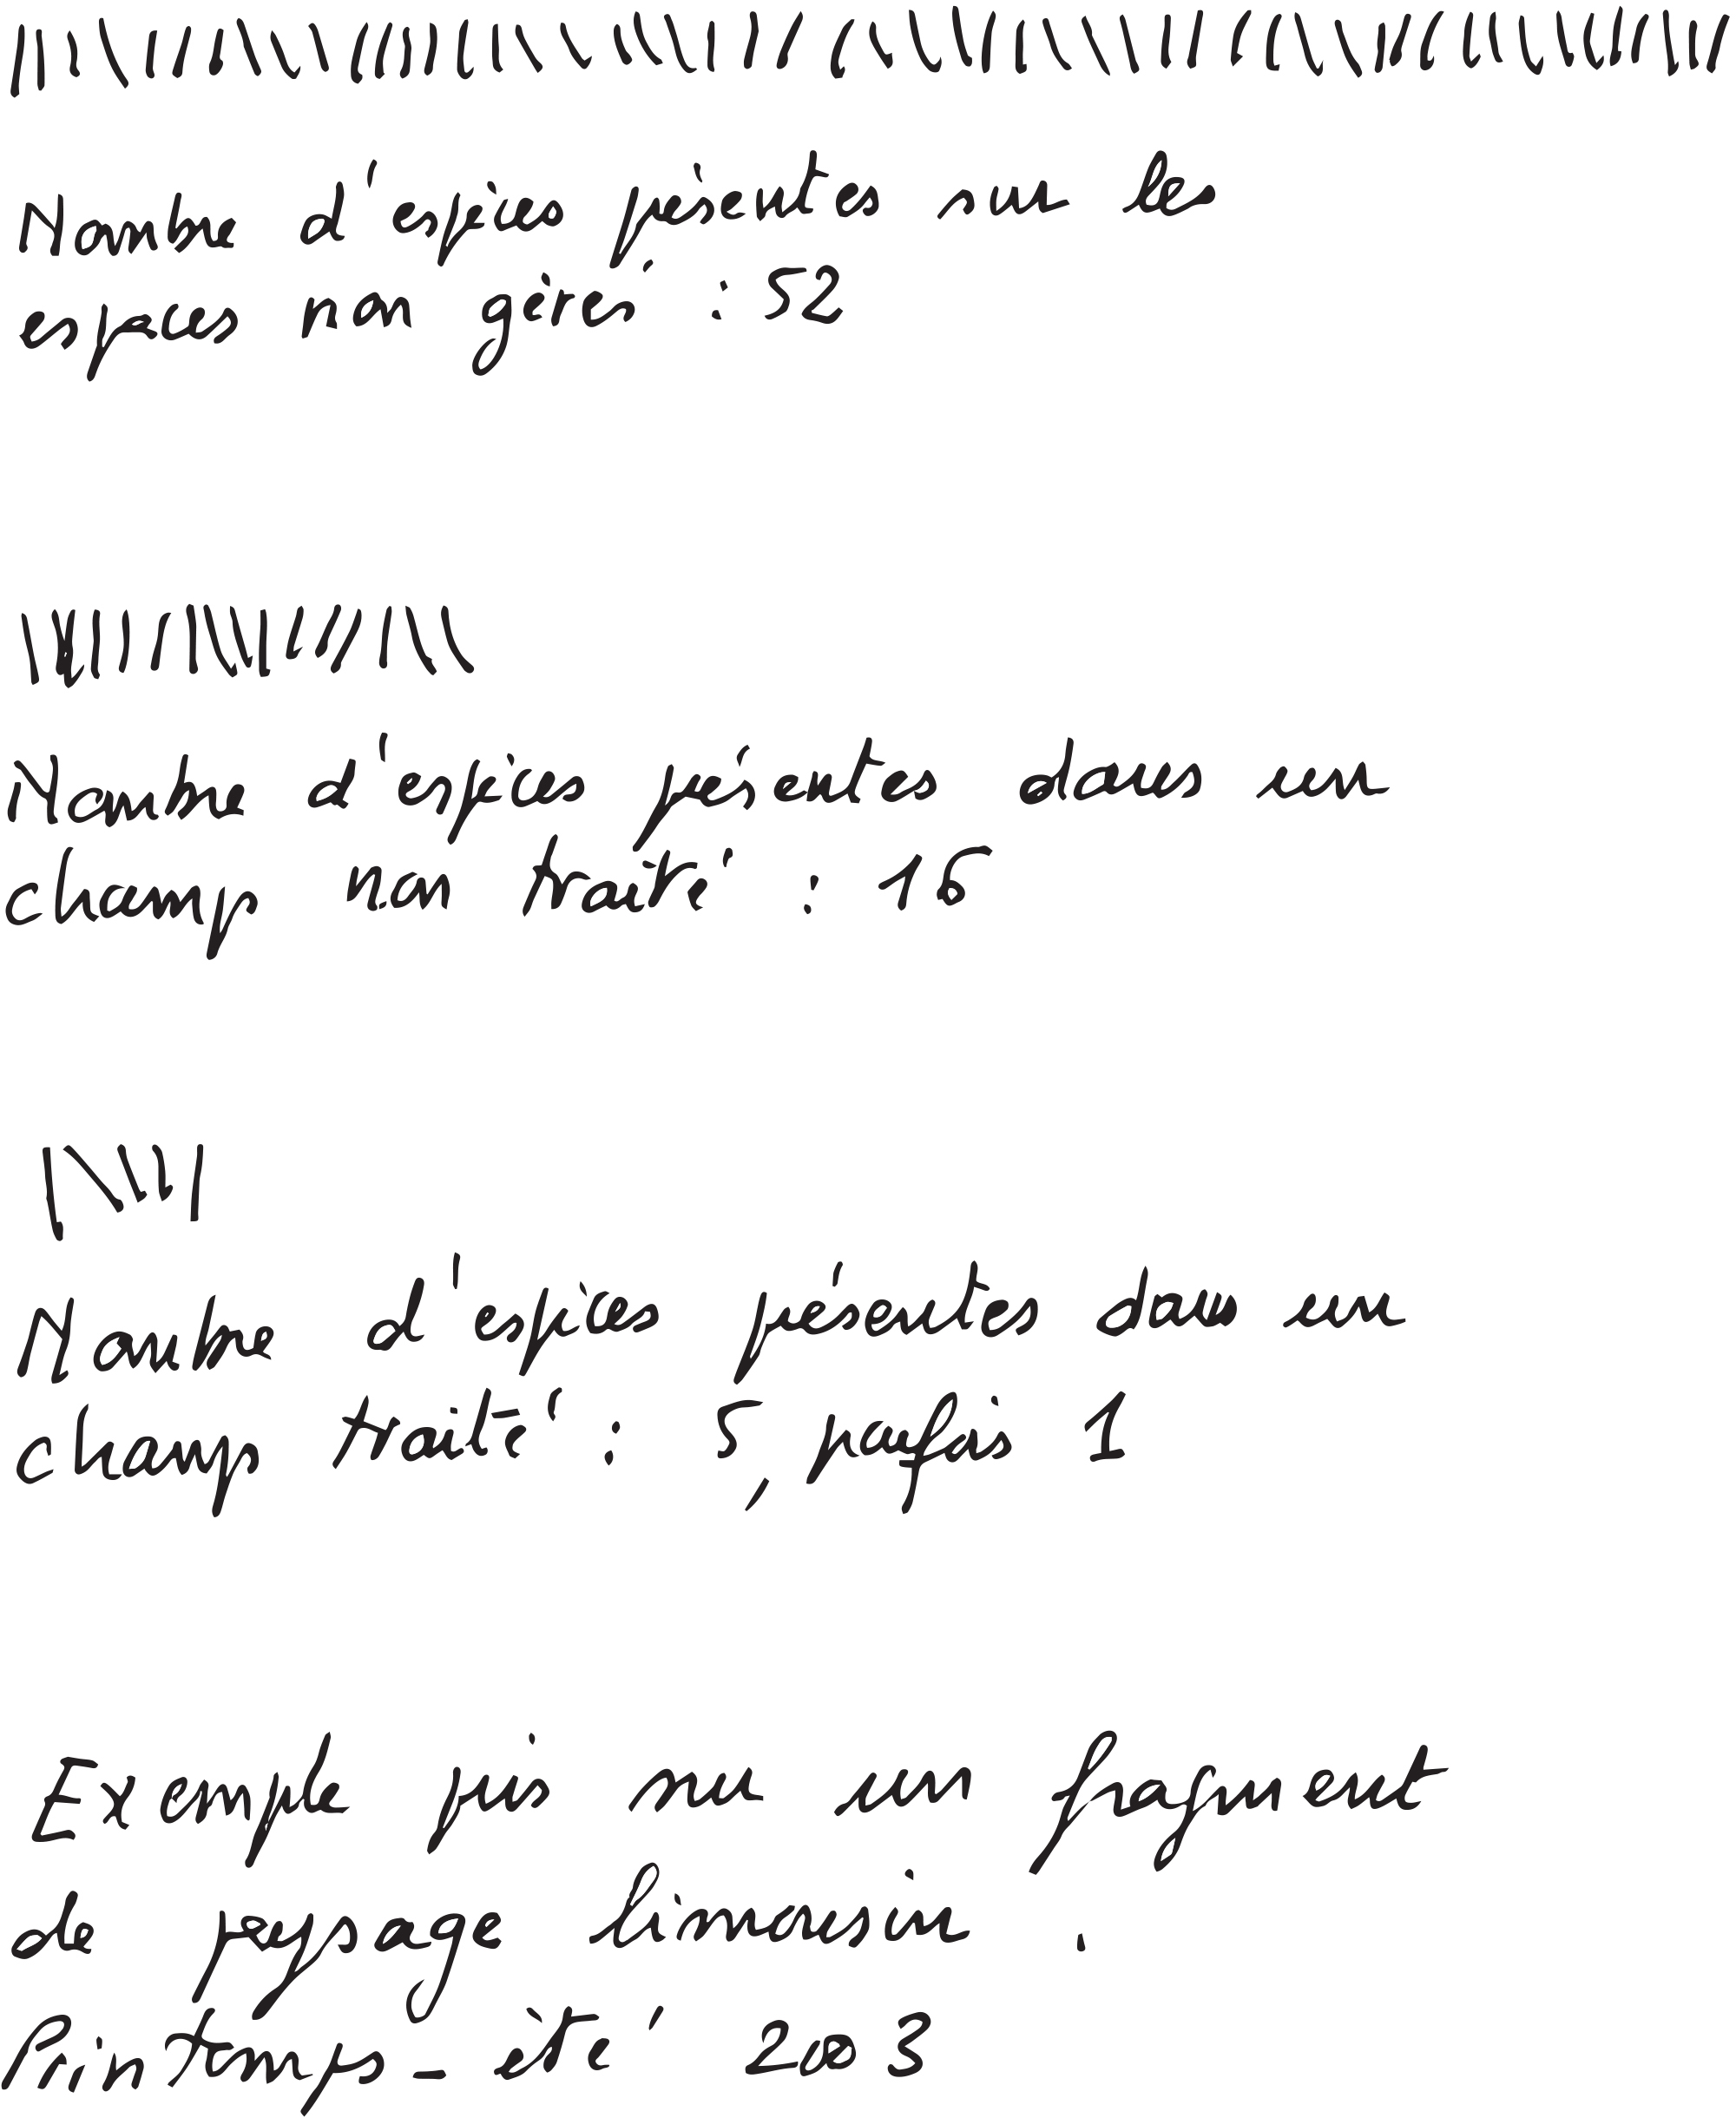 Nombre d'espèces présentes sur les
espaces non gérés : 52
Nombre d'espèces présentes dans un
champ non traité : 16
Nombre d'espèces présentes dans un
champ traité : 5, maïs 1
Exemple pris sur un fragment
de paysage limousin.
Printemps _ été 2003